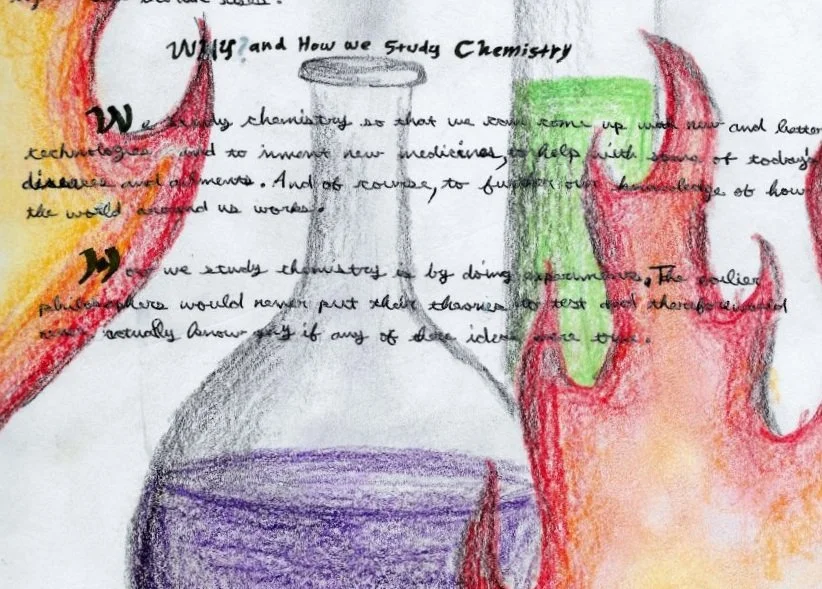 Why? and How we Study Chemistry
We study chemistry so that we can come up with new and better
technologies and to invent new medicines, to help with some of today's
diseases and ailments. And of course, to further our knowledge of how
the world around us works.
How we study chemistry is by doing experiments. The earlier
philosophers would never put their theories to test and therefore would
never actually know any if any of there ideas were true.